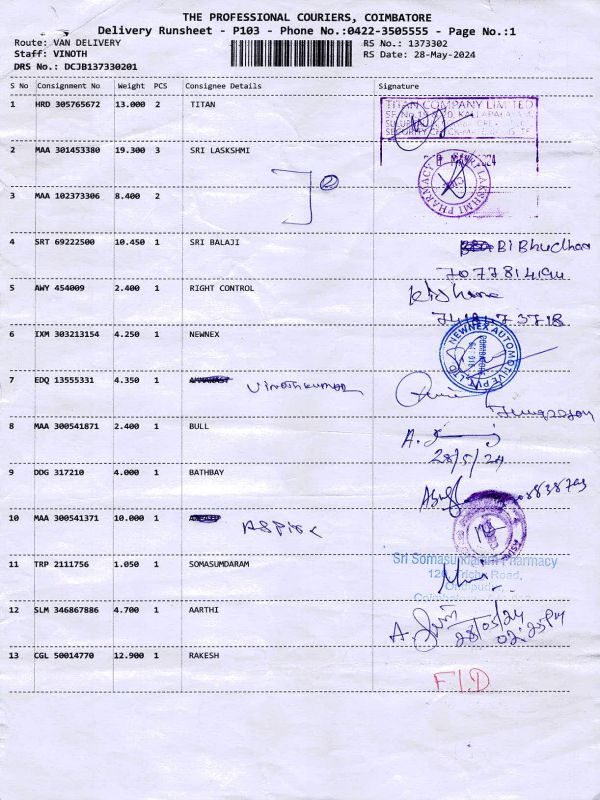 THE PROFESSIONAL COURIERS, COIMBATORE
Delivery Runsheet - P103 - Phone No.:0422-3505555 - Page No.:1
Route: VAN DELIVERY RS No.: 1373302
Staff: VINOTH RS Date: 28-May-2024
DRS No.: DCJB137330201
S No Consignment No Weight PCS Consignee Details Signature
1 HRD 305765672 13.000 2 TITAN
TITAN COMPANY LIMITED
2 MAA 301453380 19.300 3 SRI LASKSHMI
MAY 2024
LAKSHMI PHARMACY
2
3 MAA 102373306 8.400 2
4 SRT 69222500 10.450 1 SRI BALAJI
7077814194
5 AWY 454009 2.400 1 RIGHT CONTROL
6 IXM 303213154 4.250 1 NEWNEX
NEWNEX AUTOMOTIVE PVT. LTD
7 EDQ 13555331 4.350 1 Vinothkumar
8 MAA 300541871 2.400 1 BULL
28/5/24
9 DDG 317210 4.000 1 BATHBAY
10 MAA 300541371 10.000 1
11 TRP 2111756 1.050 1 SOMASUMDARAM
Pharmacy
Trichy Road,
12 SLM 346867886 4.700 1 AARTHI
28/05/24
02:25PM
13 CGL 50014770 12.900 1 RAKESH
FID